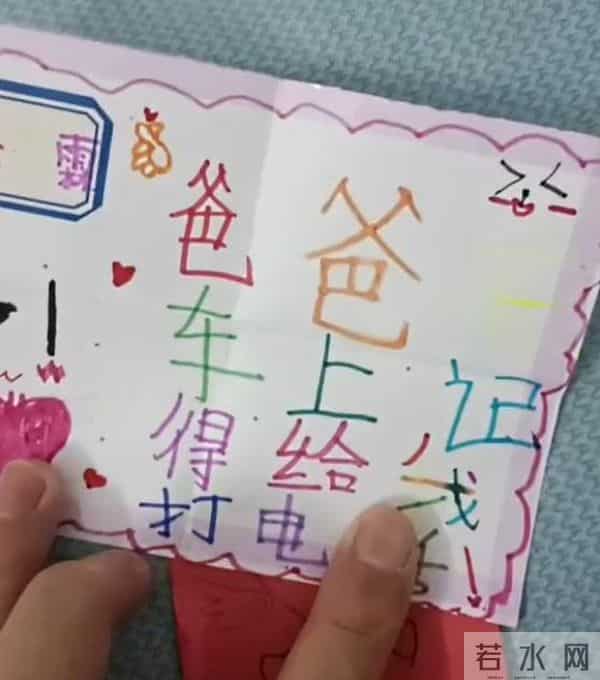 霖
爸爸
车上记
得给我
打电话!
若水网